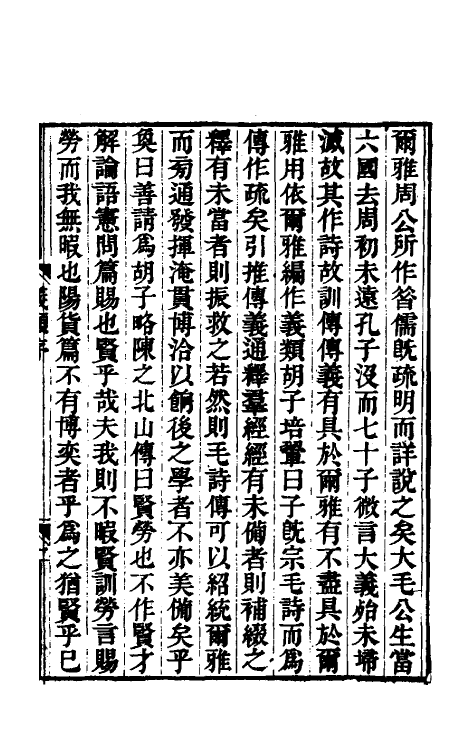 爾雅周公所作昝儒旣疏明而詳說之矣大毛公生當
六國去周初未遠孔子沒而七十子微言大義殆未埽
滅故其作詩故訓傳傳義有具於爾雅有不盡具於爾
雅用依爾雅編作義類胡子培翬曰子旣宗毛詩而爲
傳作疏矣引推傳義通釋羣經經有未備者則補綴之
釋有未當者則振救之若然則毛詩傳可以紹統爾雅
而旁通發揮淹貫博洽以餉後之學者不亦美備矣乎
奐曰善請爲胡子略陳之北山傳曰賢勞也不作賢才
解論語憲問篇賜也賢乎哉夫我則不暇賢訓勞言賜
勞而我無暇也陽貨篇不有博奕者乎爲之猶賢乎已
義類序